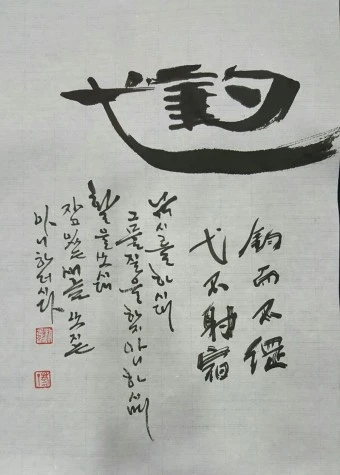 釣而不綱
弋不射宿
낚시를 하시되
그물질을 하지 아니하시며
활을 쏘시되
새를 쏘지는
아니하더시다